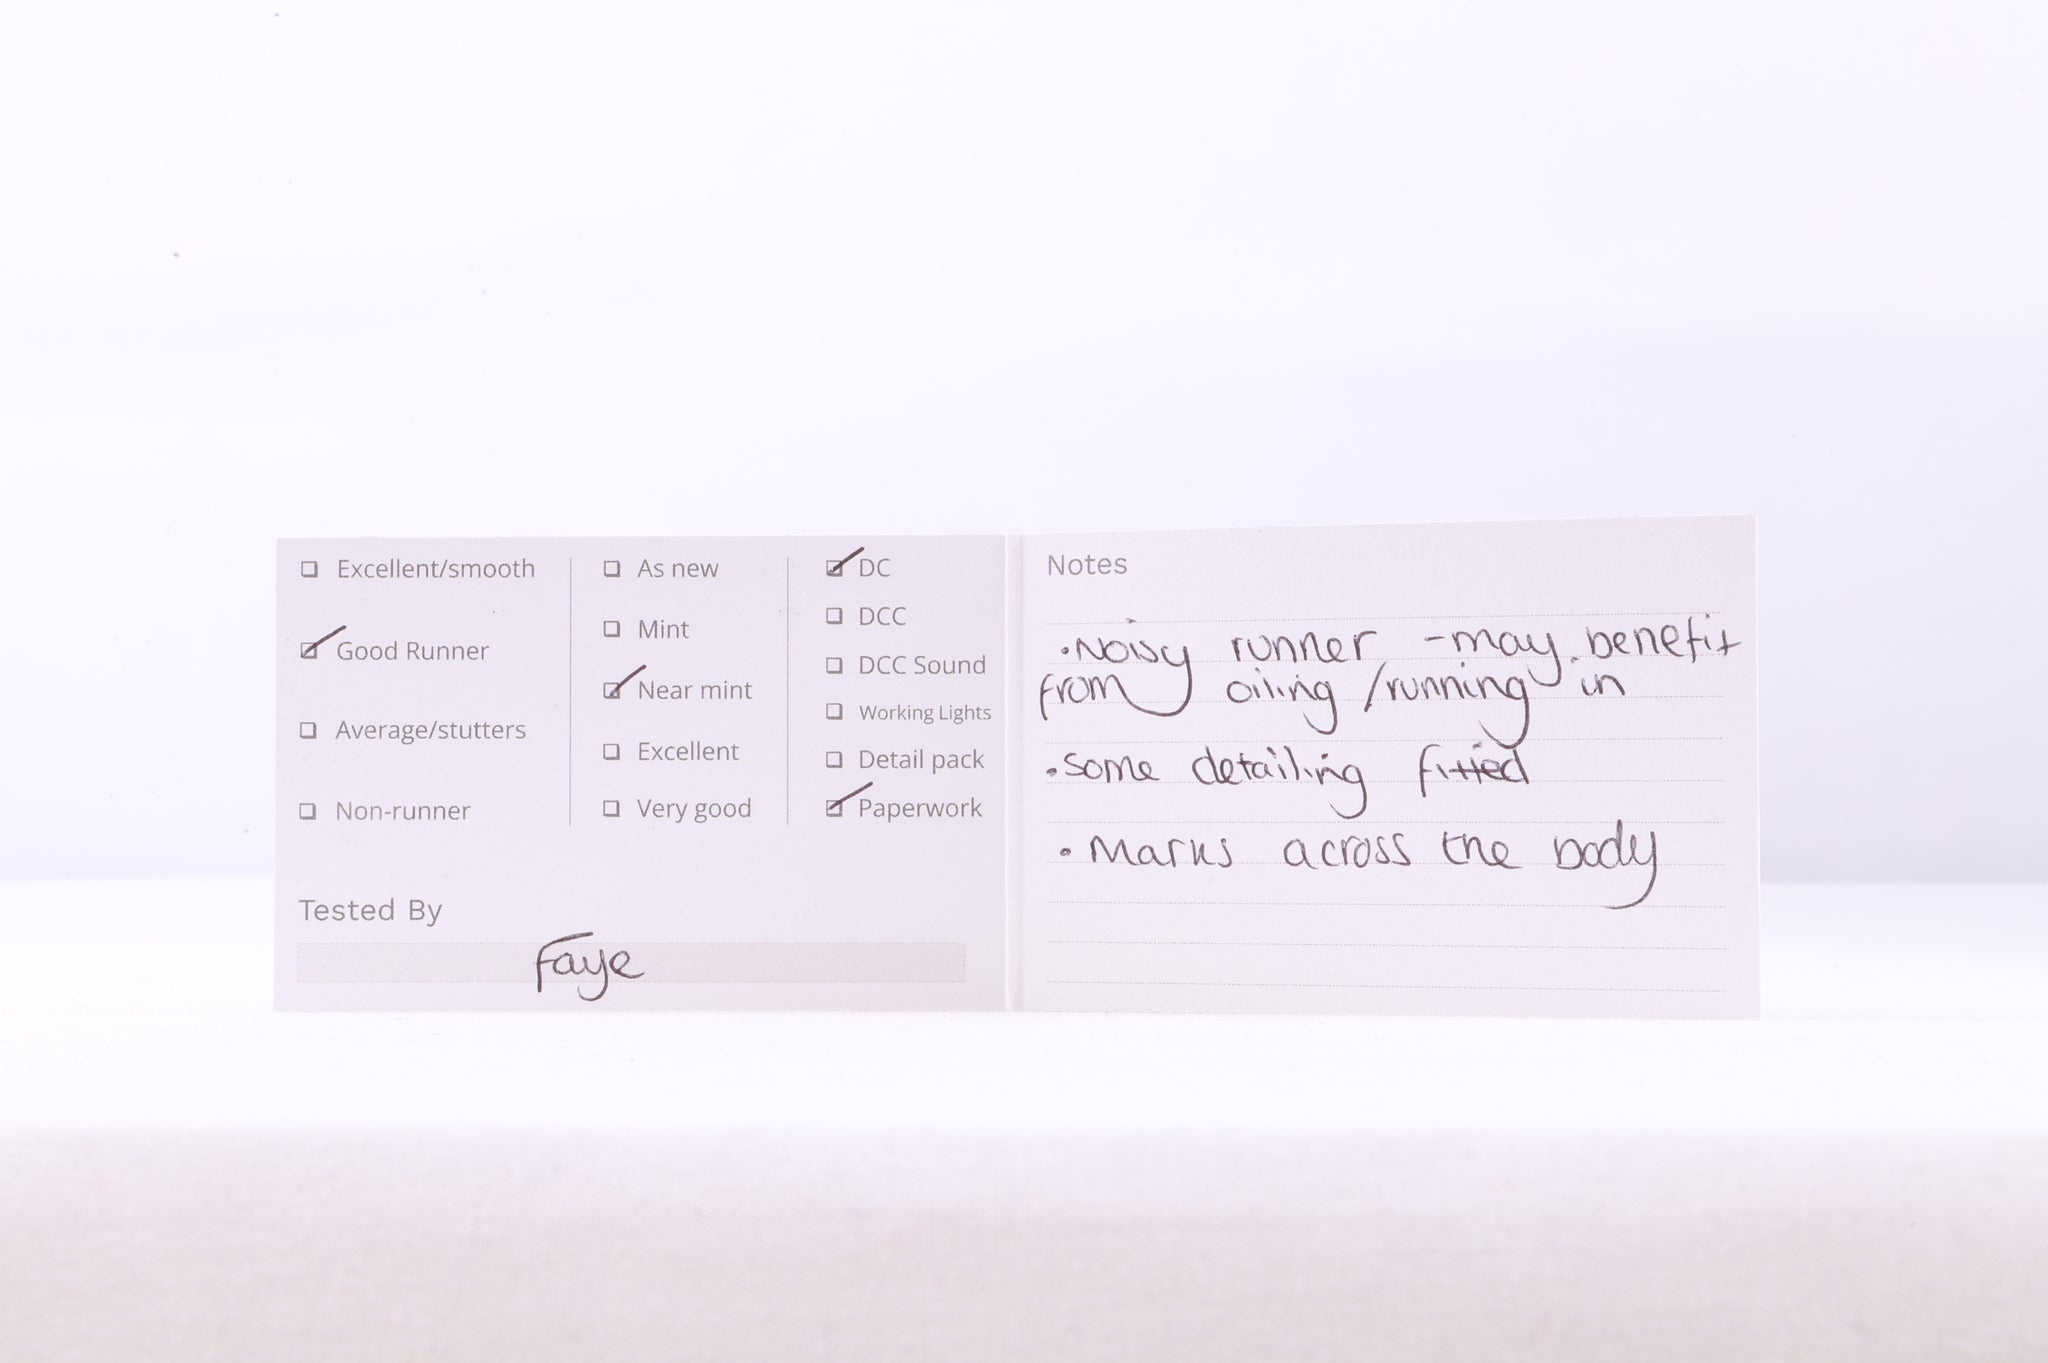 ☐ Excellent/smooth
☑ Good Runner
☐ Average/stutters
☐ Non-runner
☐ As new
☐ Mint
☑ Near mint
☐ Excellent
☐ Very good
☑ DC
☐ DCC
☐ DCC Sound
☐ Working Lights
☐ Detail pack
☑ Paperwork
Tested By
Faye
Notes
• Noisy runner - may benefit
from oiling / running in
• Some detailing fitted
• Marks across the body